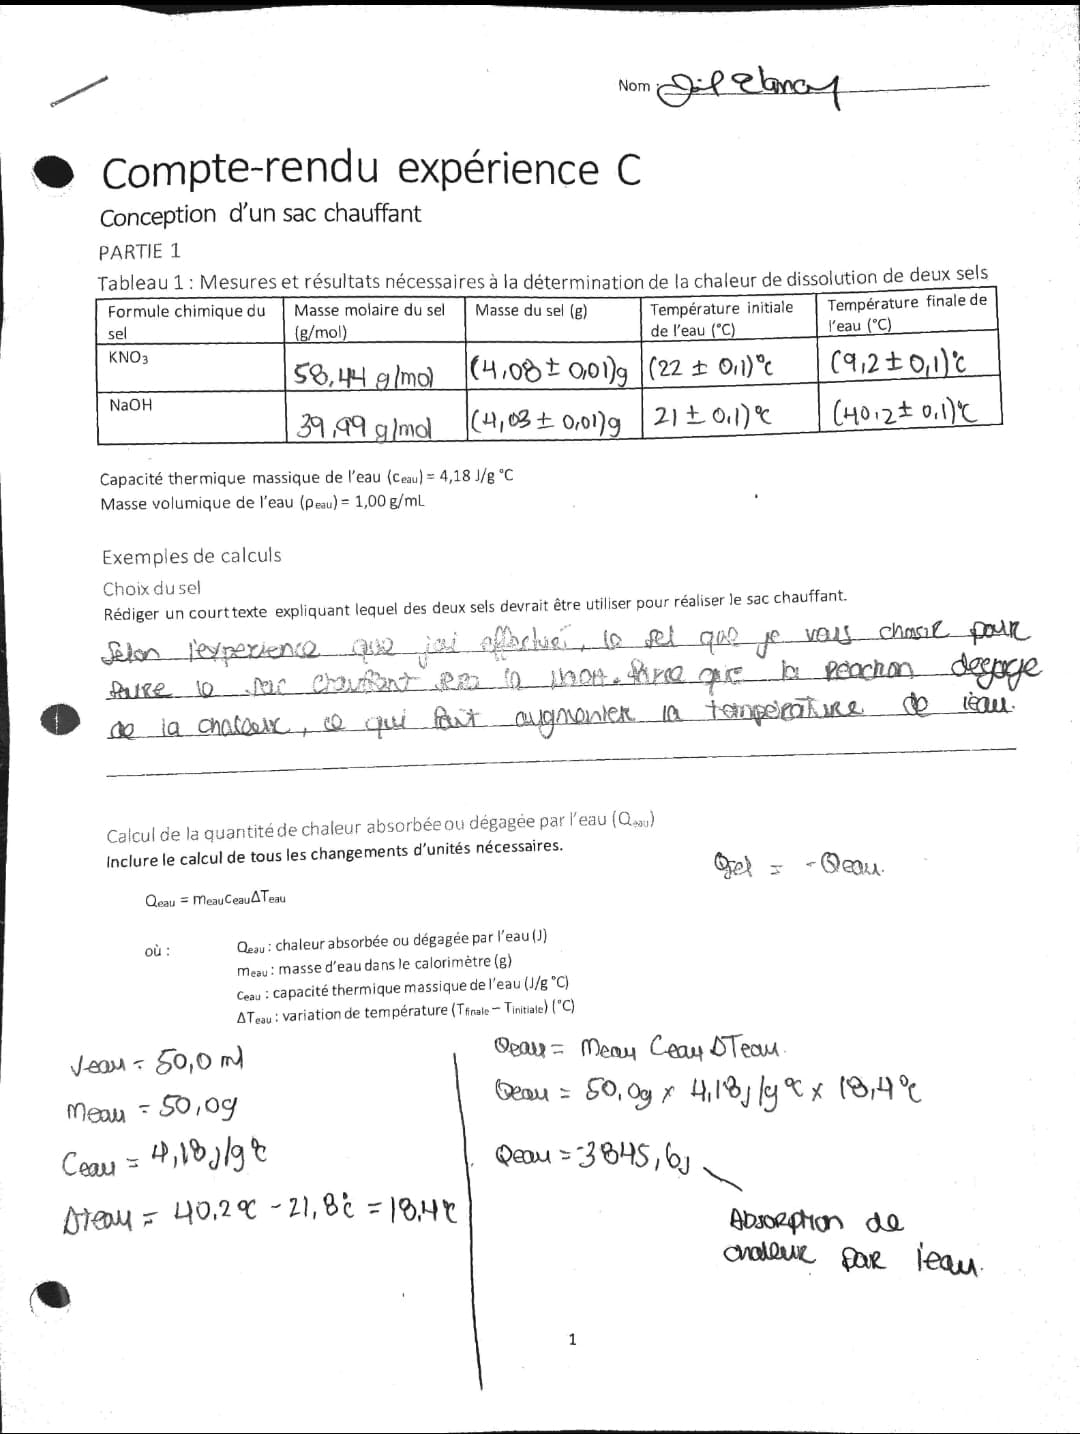 Nom :
Compte-rendu expérience C
Conception d'un sac chauffant
PARTIE 1
Tableau 1 : Mesures et résultats nécessaires à la détermination de la chaleur de dissolution de deux sels
Formule chimique du sel | Masse molaire du sel (g/mol) | Masse du sel (g) | Température initiale de l'eau (°C) | Température finale de l'eau (°C)
KNO3 | 58,44 g/mol | (4,08 ± 0,01)g | (22 ± 0,1)°C | (9,2 ± 0,1)°C
NaOH | 39,99 g/mol | (4,03 ± 0,01)g | 21 ± 0,1)°C | (40,2 ± 0,1)°C
Capacité thermique massique de l'eau (ceau) = 4,18 J/g °C
Masse volumique de l'eau (ρeau) = 1,00 g/mL
Exemples de calculs
Choix du sel
Rédiger un court texte expliquant lequel des deux sels devrait être utiliser pour réaliser le sac chauffant.
Selon l'experience que j'ai effectué, le sel que je vais choisir pour
faire le sac chauffant est le NaOH. Parce que la réaction degage
de la chaleur, ce qui fait augmenter la température de l'eau.
Calcul de la quantité de chaleur absorbée ou dégagée par l'eau (Qeau)
Inclure le calcul de tous les changements d'unités nécessaires.
Qsel = -Qeau.
Qeau = meauceauΔTeau
où :
Qeau : chaleur absorbée ou dégagée par l'eau (J)
meau : masse d'eau dans le calorimètre (g)
ceau : capacité thermique massique de l'eau (J/g °C)
ΔTeau : variation de température (Tfinale – Tinitiale) (°C)
Veau = 50,0 ml
Meau = 50,0g
Ceau = 4,18 J/g°C
ΔTeau = 40,2°C - 21,8°C = 18,4°C
Qeau = Meau Ceau ΔTeau.
Qeau = 50,0g x 4,18J/g°C x 18,4°C
Qeau = 3845,6J
Absorption de
chaleur par l'eau.
1